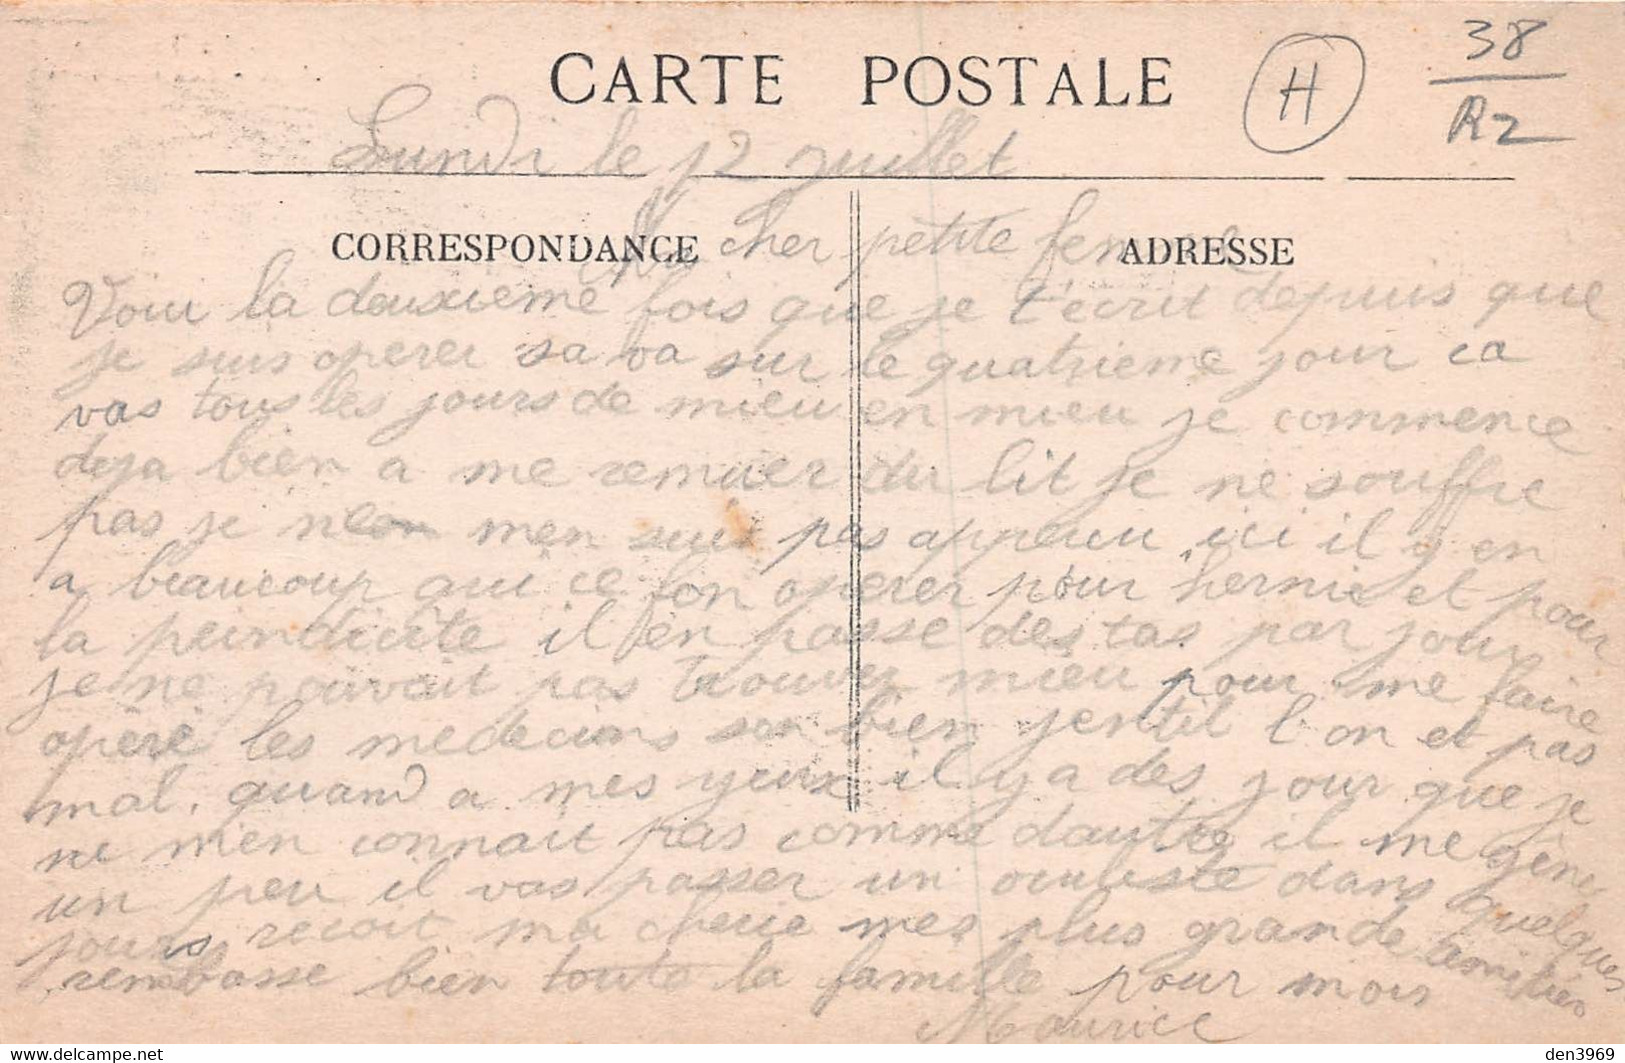 CARTE POSTALE
H
38
R2
Lundi le 12 juillet
CORRESPONDANCE
ADRESSE
Ma cher petite femme
Voici la deuxieme fois que je t'écrit depuis que
je suis operer sa va sur le quatrieme jour ca
vas tous les jours de mieu en mieu je commence
deja bien a me remuer du lit je ne souffre
pas je men suis pas apperçu ici il y en
a beaucoup qui ce fon operer pour hernie et pour
la peindicite il en passe des tas par jour
je ne pouvait pas trouver mieu pour me faire
opéré les medecins son bien jentil l'on et pas
mal. quand a mes yeux il y a des jour que je
ne m'en connait pas comme dautre il me gene
un peu il vas passer un oculiste dans quelques
jours recoit ma cherie mes plus grande amitier
rembasse bien toute la famille pour moi
Maurice
den3969